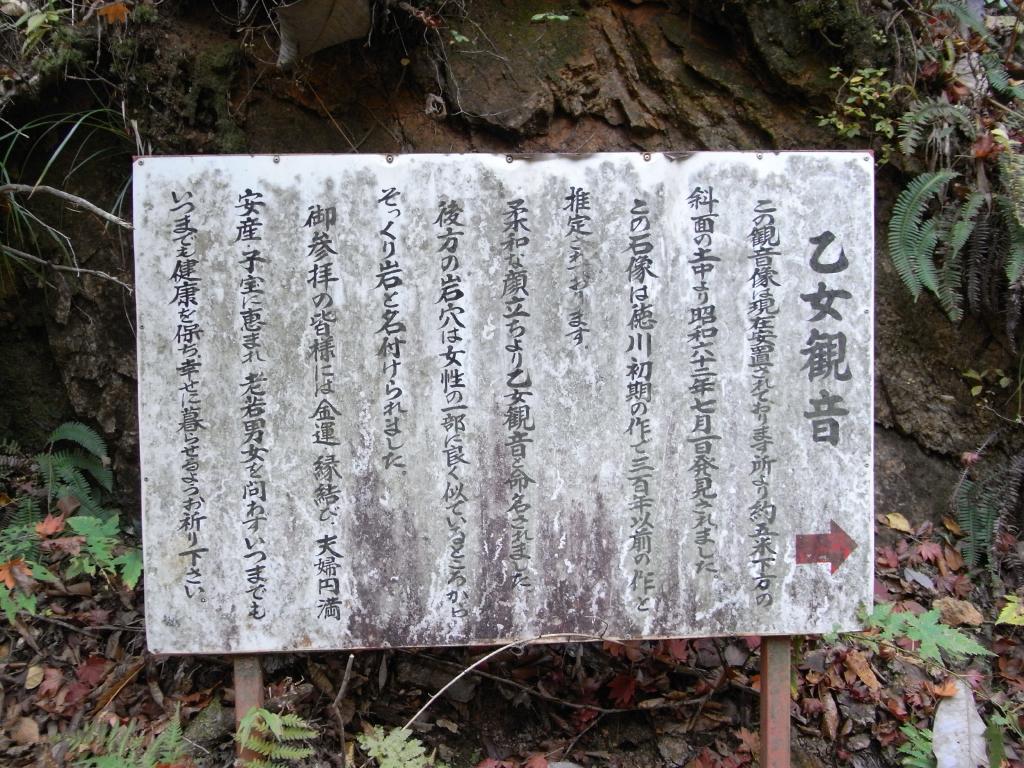 乙女観音
この観音像は現在安置されております所より約五米下方の
斜面の土中より昭和六十二年七月一日発見されました
この石像は徳川初期の作で三百年以前の作と
推定されております。
柔和な顔立ちより乙女観音と命名されました
後方の岩穴は女性の一部に良く似ているところから
そっくり岩と名付けられました。
御参拝の皆様には金運、縁結び、夫婦円満
安産、子宝に恵まれ、老若男女を問わずいつまでも
いつまでも健康を保ち、幸せに暮らせるようお祈り下さい。